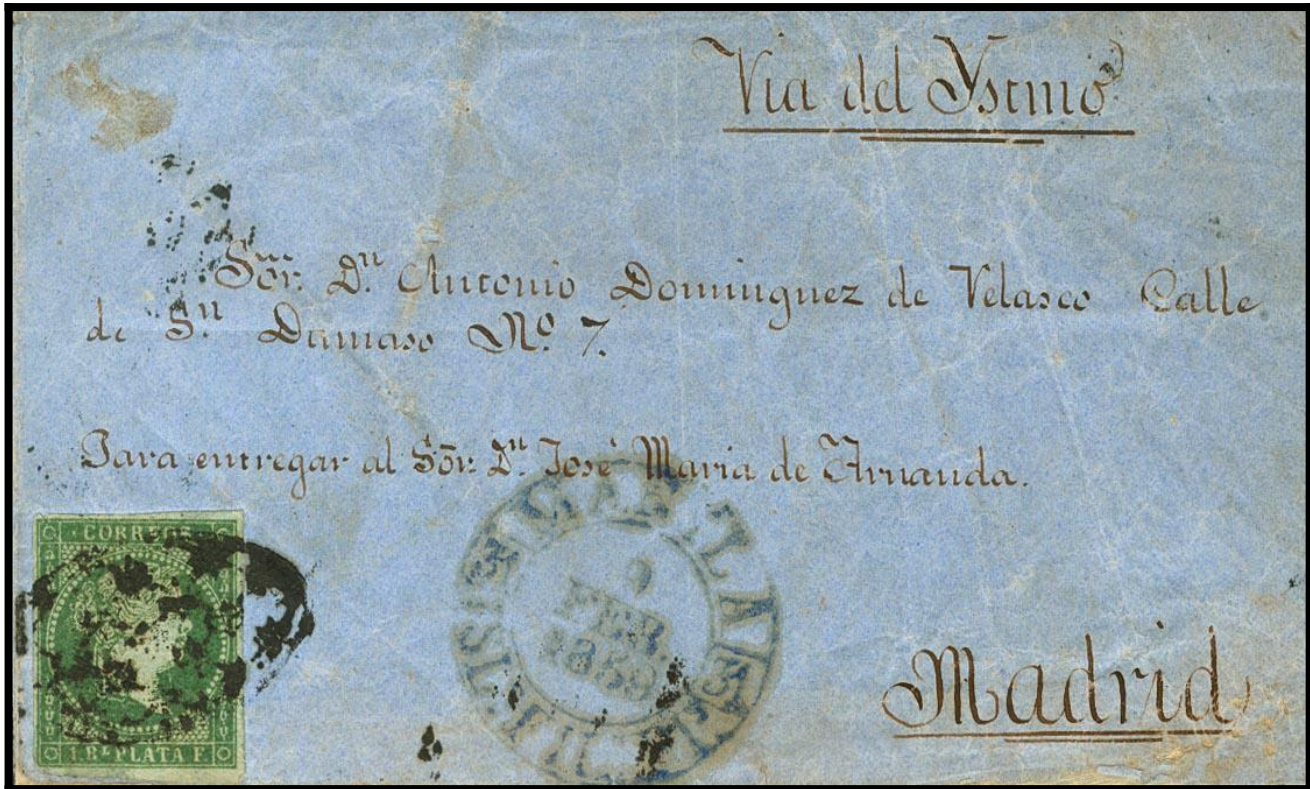 Via del Ystmo
Sõr. Dⁿ. Antonio Dominguez de Velasco Calle
de Sⁿ Damaso Nº. 7.
Para entregar al Sõr. Dⁿ. José Maria de
CORREOS
1 Rˡ PLATA F.
FEB.
1859
Madrid